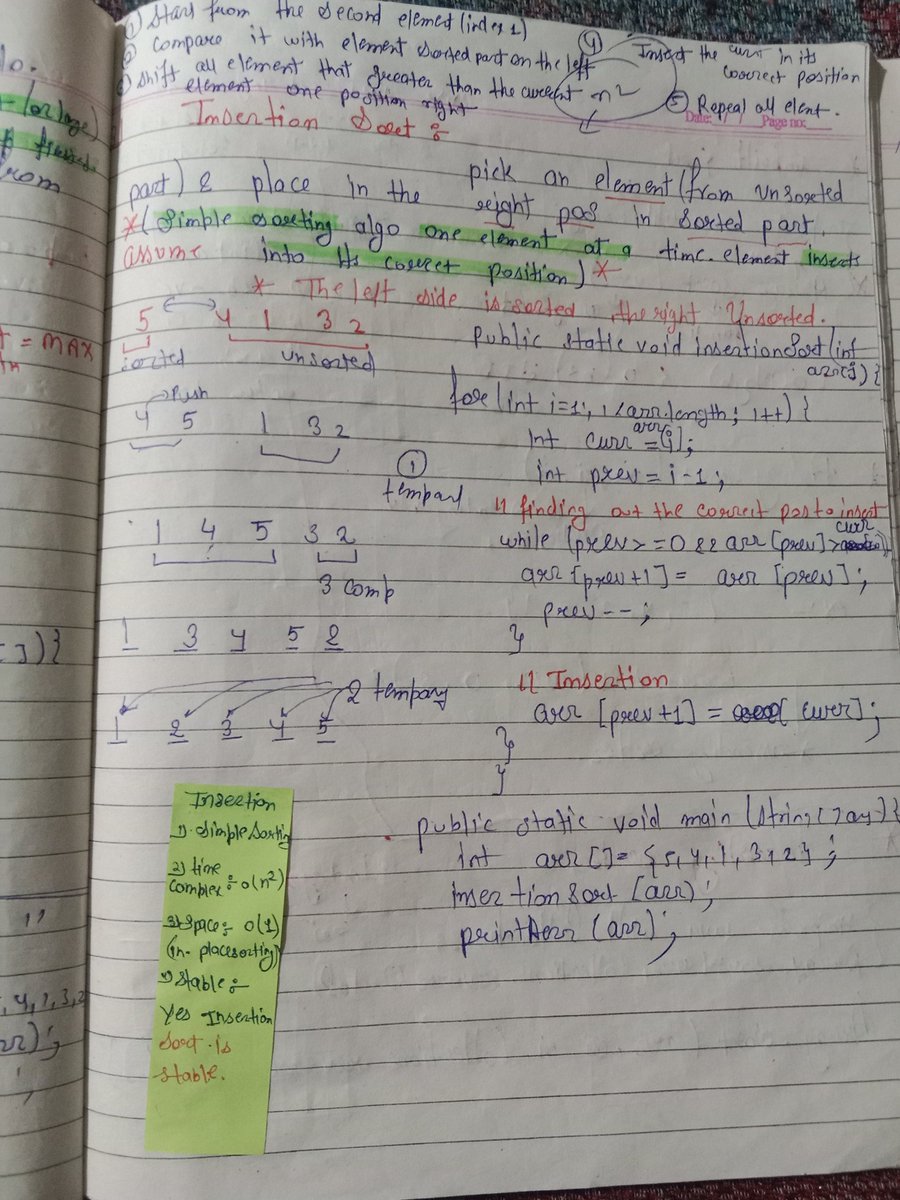 ① Start from the second element (index 1)
② compare it with element sorted part on the left
③ shift all element that greater than the current
element one position right
④ Insert the curr in its
correct position
n²
⑤ Repeat all elent.
Date: Page no:
Insertion Sort ÷
pick an element (from unsorted
part) & place in the right pos in sorted part.
*(Simple sorting algo one element at a time. element inserts
into its correct position) *
assume
* The left side is sorted, the right Unsorted.
5 4 1 3 2
sorted unsorted
Push
4 5 1 3 2
①
1 4 5 3 2
3 comp
1 3 4 5 2
2 tempary
1 2 3 4 5
public static void insertionSort (int
arr[]) {
for (int i=1; i<arr.length; i++) {
int curr = arr[i];
int prev = i-1;
// finding out the correct pos to insert
while (prev >= 0 && arr [prev] > curr
arr [prev+1] = arr [prev];
prev--;
}
// Insertion
arr [prev+1] = [curr];
}
}
public static void main (String [] ay) {
int arr[] = {5, 4, 1, 3, 2};
insertionSort (arr);
printArr (arr);
Insertion
1) Simple Sorting
2) time
complex ÷ o(n²)
3) Space ÷ o(1)
(in-place sorting)
Stable ÷
Yes Insertion
Sort is
stable.
lo.
from
= MAX
[ ]) {
, 4, 1, 3, 2
rr);